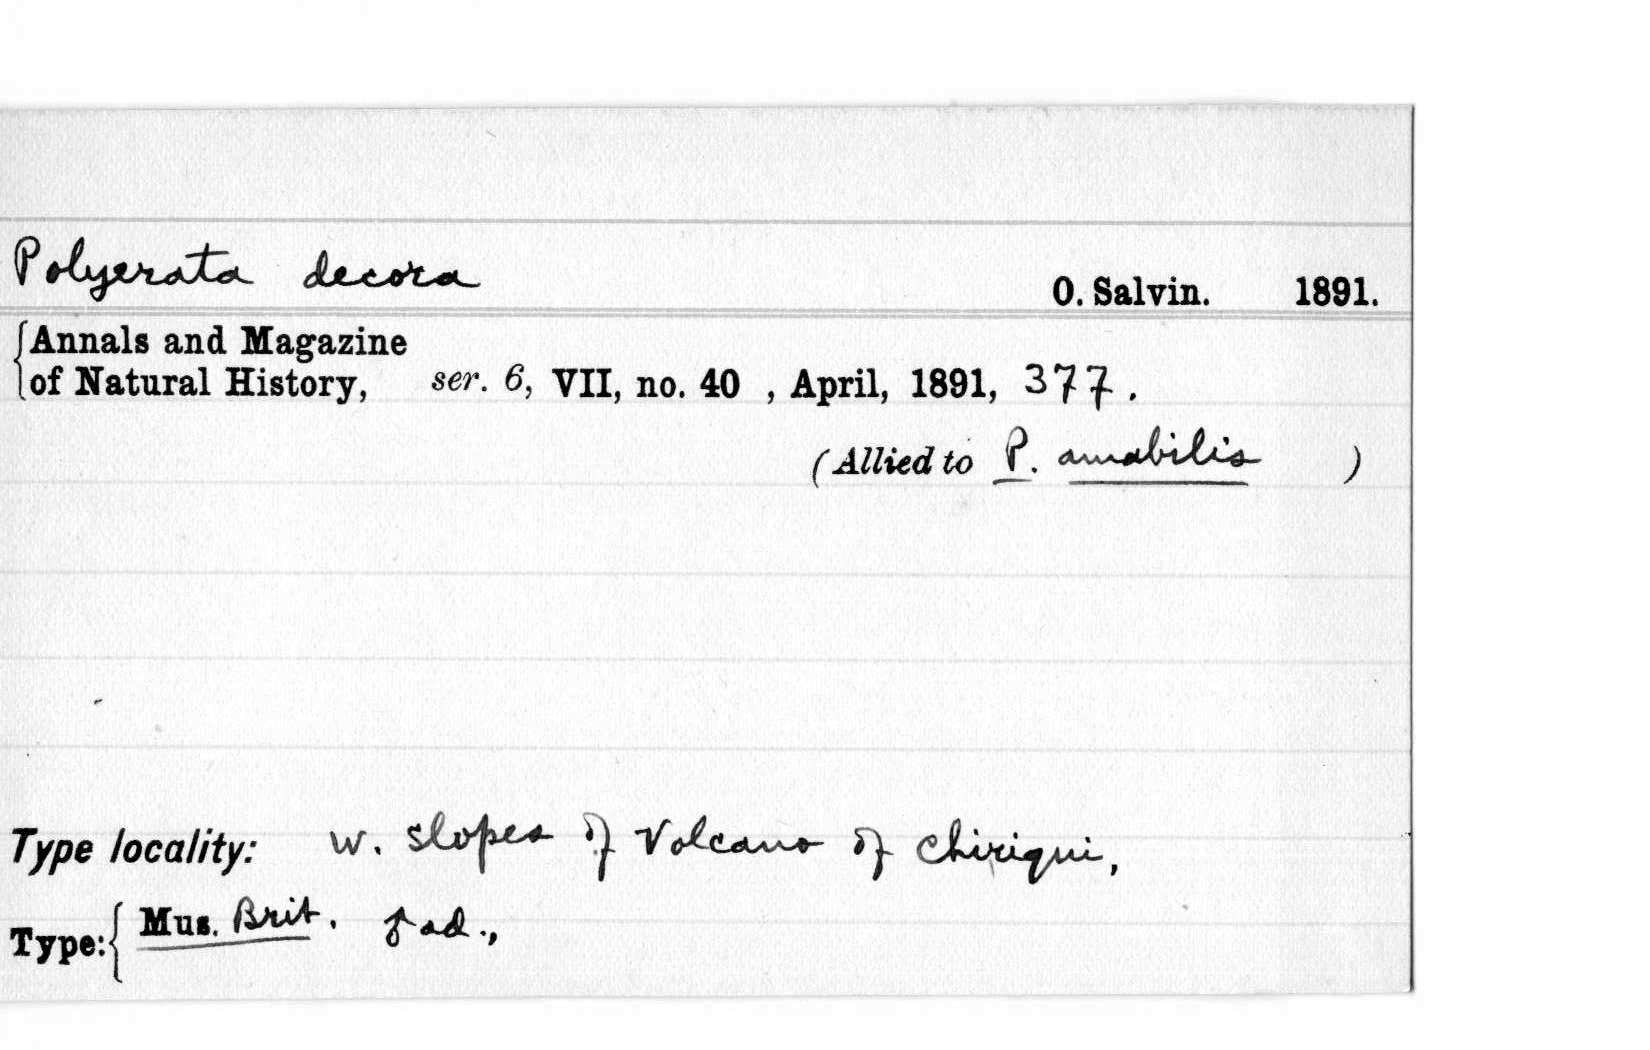 Polyerata decora
O. Salvin. 1891.
Annals and Magazine
of Natural History, ser. 6, VII, no. 40 , April, 1891, 377.
(Allied to P. amabilis )
Type locality: W. slopes of Volcano of Chiriqui,
Type: Mus. Brit. ♂ ad.,